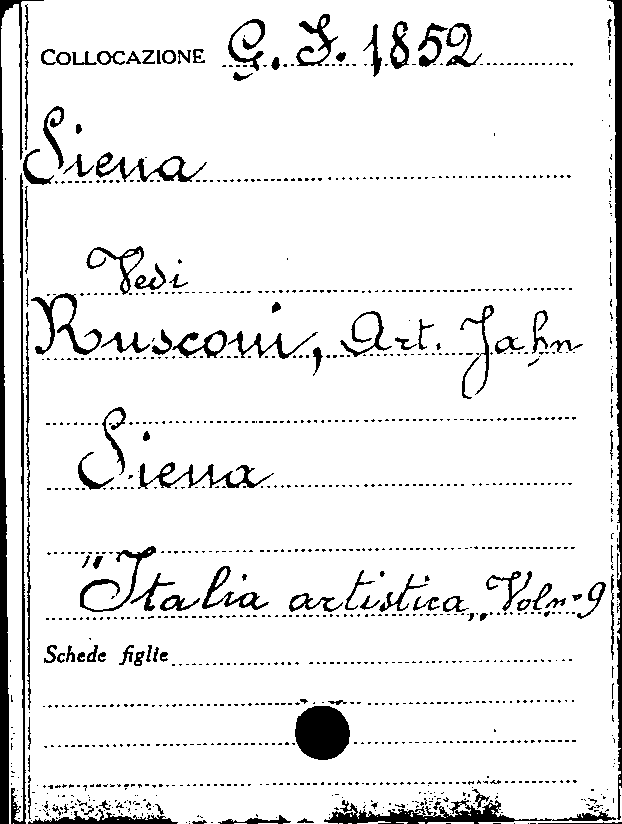 COLLOCAZIONE G. F. 1852
Siena
Vedi
Rusconi, Art. Jahn
Siena
"Italia artistica„ Vol. n. 9
Schede figlie